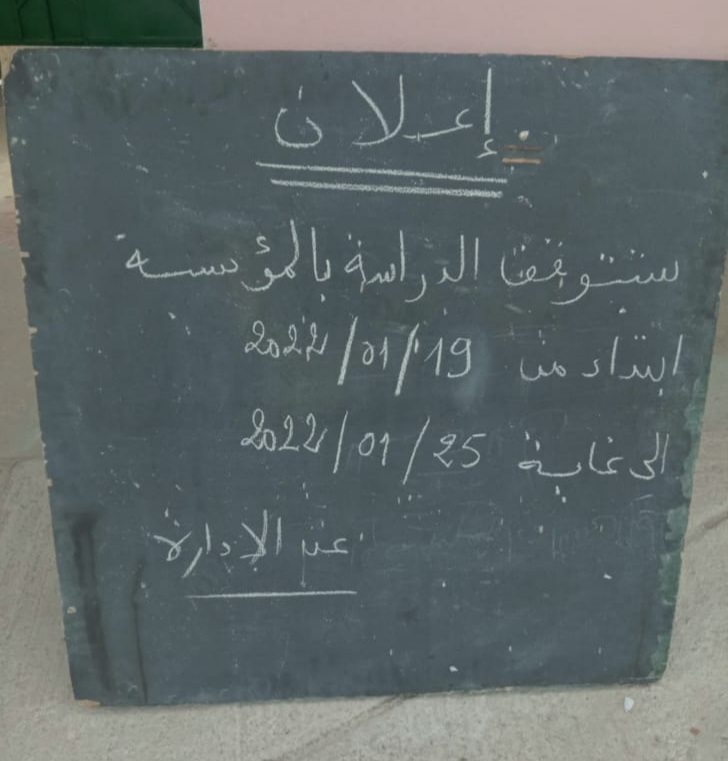 إعلان
ستتوقف الدراسة بالمؤسسة
ابتداء من 19/01/2022
الى غاية 25/01/2022
عن الإدارة